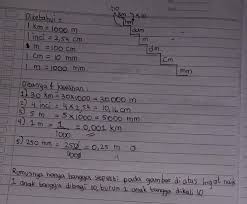 Diketahui :
1 km = 1000 m
1 inci = 2,54 cm
1 m = 100 cm
1 cm = 10 mm
1 m = 1000 mm
km
hm
dam
m
dm
cm
mm
Ditanya & jawaban :
1) 30 km = 30 x 1000 = 30000 m
2) 4 inci = 4 x 2,54 = 10,16 cm
3) 5 m = 5 x 1000 = 5000 mm
4) 1 m = 1/1000 = 0,001 km
5) 250 mm = 250/1000 = 0,25 m
Rumusnya hanya tangga seperti pada gambar di atas ingat naik
1 anak tangga dibagi 10, turun 1 anak tangga dikali 10